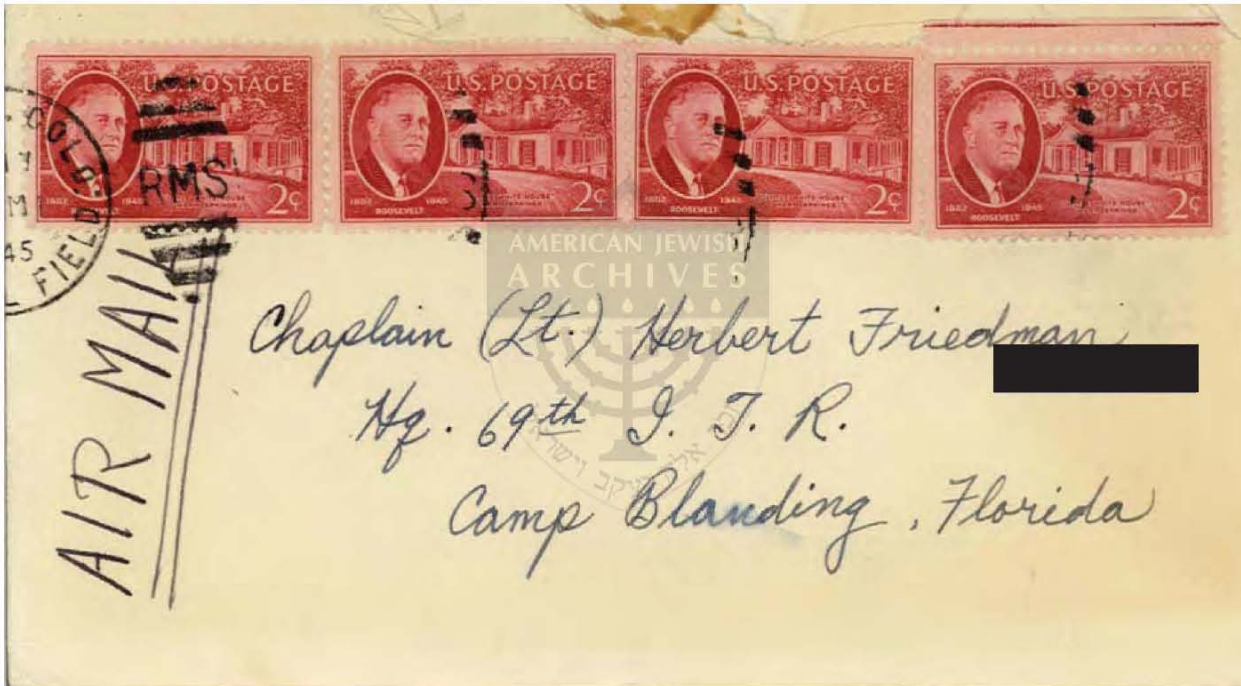 U.S. POSTAGE
1882 1945
ROOSEVELT
2¢
U.S. POSTAGE
1882 1945
ROOSEVELT
2¢
U.S. POSTAGE
1882 1945
ROOSEVELT
2¢
U.S. POSTAGE
1882 1945
ROOSEVELT
2¢
COLO.
45
FIELD
RMS
AIR MAIL
AMERICAN JEWISH
ARCHIVES
Chaplain (Lt.) Herbert Friedman
Hq. 69th I. T. R.
Camp Blanding, Florida